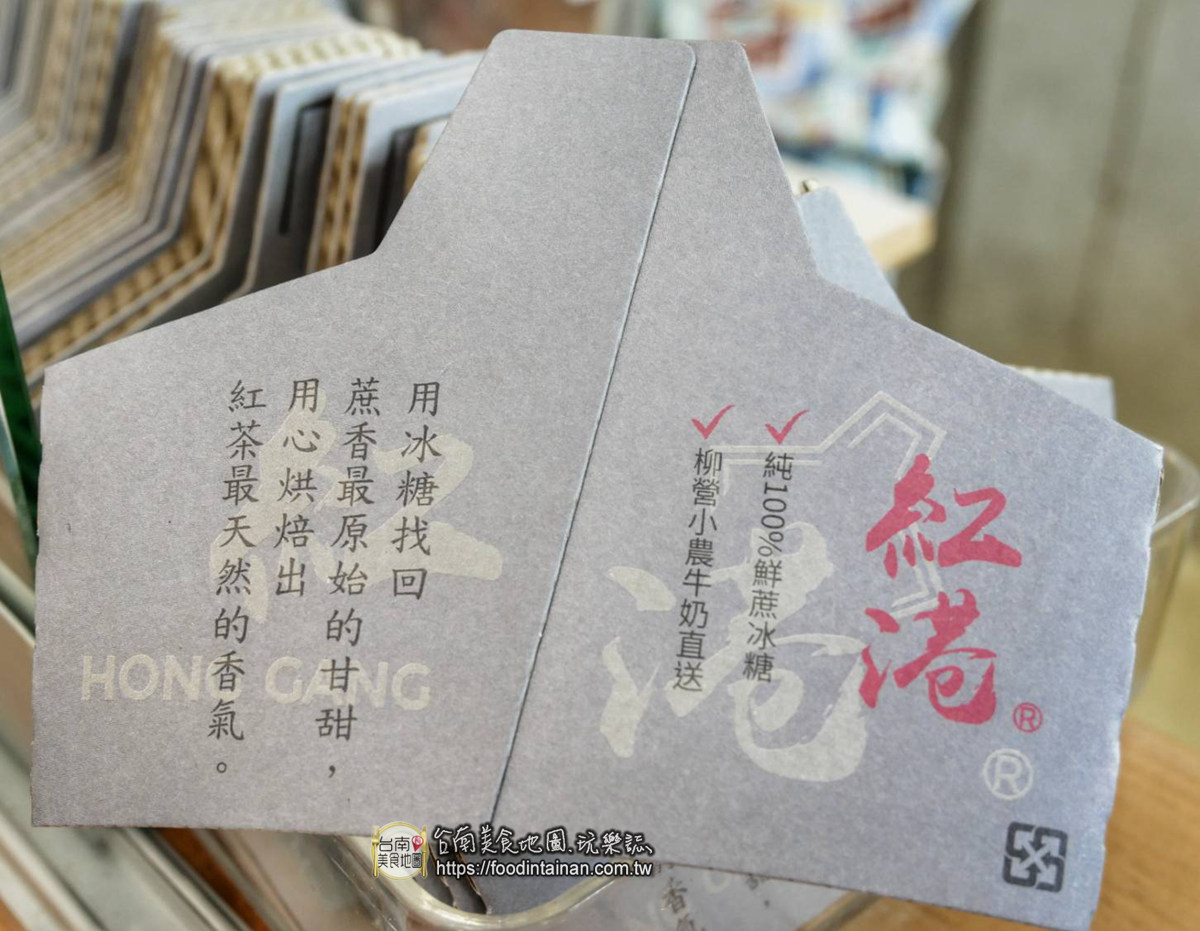 用冰糖找回
蔗香最原始的甘甜，
用心烘焙出
紅茶最天然的香氣。
紅
HONG GANG
紅港®
純100%鮮蔗冰糖
柳營小農牛奶直送
港®
台南美食地圖
台南美食地圖.玩樂誌
https://foodintainan.com.tw
香氣